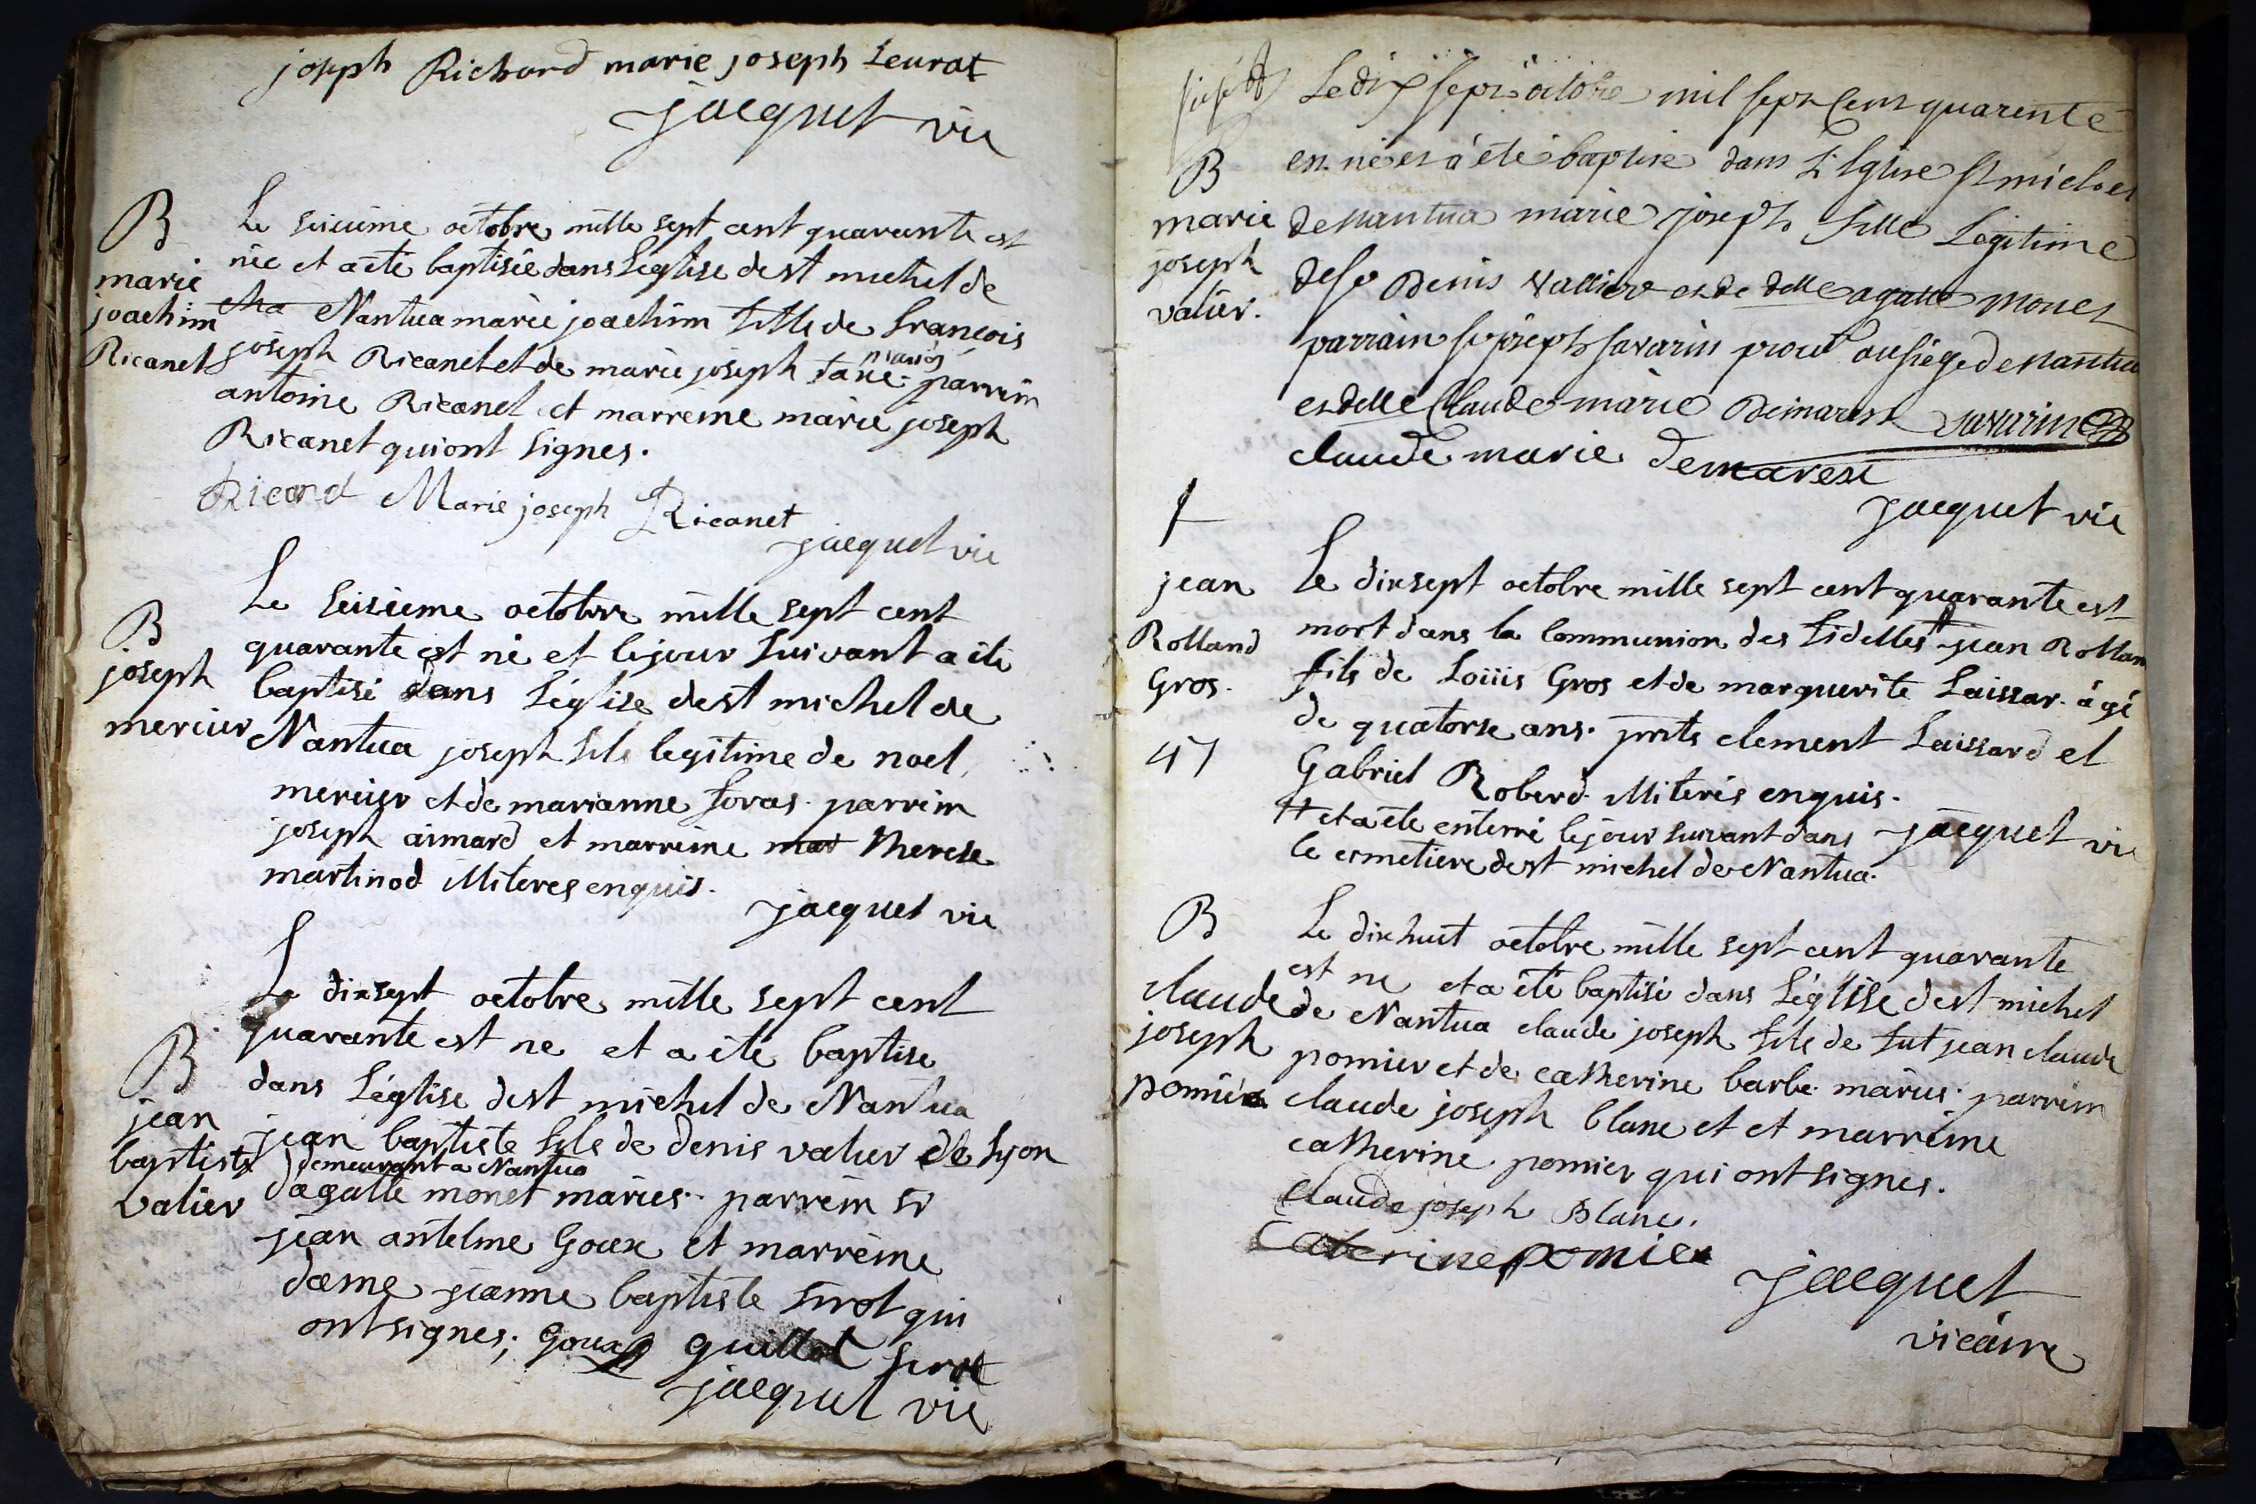 joseph Richard marie joseph Leurat
jacquet vic
B
marie
joachim
Ricanet
Le seisieme octobre mille sept cent quarante est
née et a été baptisée dans L'église de st michel de
Nantua marie joachim fille de françois
joseph Ricanet et de marie joseph tane mariés parrein
antoine Ricanet et marreine marie joseph
Ricanet qui ont signes.
Ricanet Marie joseph Ricanet
jacquet vic
B
joseph
mercier
Le seisieme octobre mille sept cent
quarante est né et le jour suivant a été
baptisé dans L'église de st michel de
Nantua joseph fils legitime de noel
mercier et de marianne foras. parrein
joseph aimard et marreine mar therese
martinod illiteres enquis.
jacquet vic
B
jean
baptiste
valier
Le dixsept octobre mille sept cent
quarante est ne et a été baptise
dans L'église de st michel de Nantua
jean baptiste fils de denis valier de Lyon
demeurant a Nantua
d'agatte monet mariés. parrein sr
jean antelme Goux et marreine
dame jeanne baptiste sirot qui
ont signes; Goux guillot sirot
jacquet vic
B
marie
joseph
valier.
Le dix sept octobre mil sept Cent quarente
est née et a été baptisé dans L'Eglise St michel
de Nantua marie joseph fille Legitime
de sr Denis Vallier et de delle agatte Monet
parrain sr joseph savarin procr au siege de Nantua
et delle Claude marie Demarest savarin
claude marie demarest
jacquet vic
†
jean
Rolland
Gros.
47
Le dixsept octobre mille sept cent quarante est
mort dans la Communion des fidelles # jean Rollan
fils de Loüis Gros et de marguerite Laissar. âgé
de quatorse ans. prnts clement Laissard et
Gabriel Roberd illiterés enquis.
# et a été enterré le jour suivant dans jacquet vic
le cemetiere de st michel de Nantua.
B
claude
joseph
pomier
Le dixhuit octobre mille sept cent quarante
est ne et a été baptisé dans L'église de st michel
de Nantua claude joseph fils de fut jean claude
pomier et de catherine barbe mariés. parrein
claude joseph blanc et et marreine
catherine pomier qui ont signés.
Claude joseph Blanc.
Caterine pomier
jacquet
vicaire